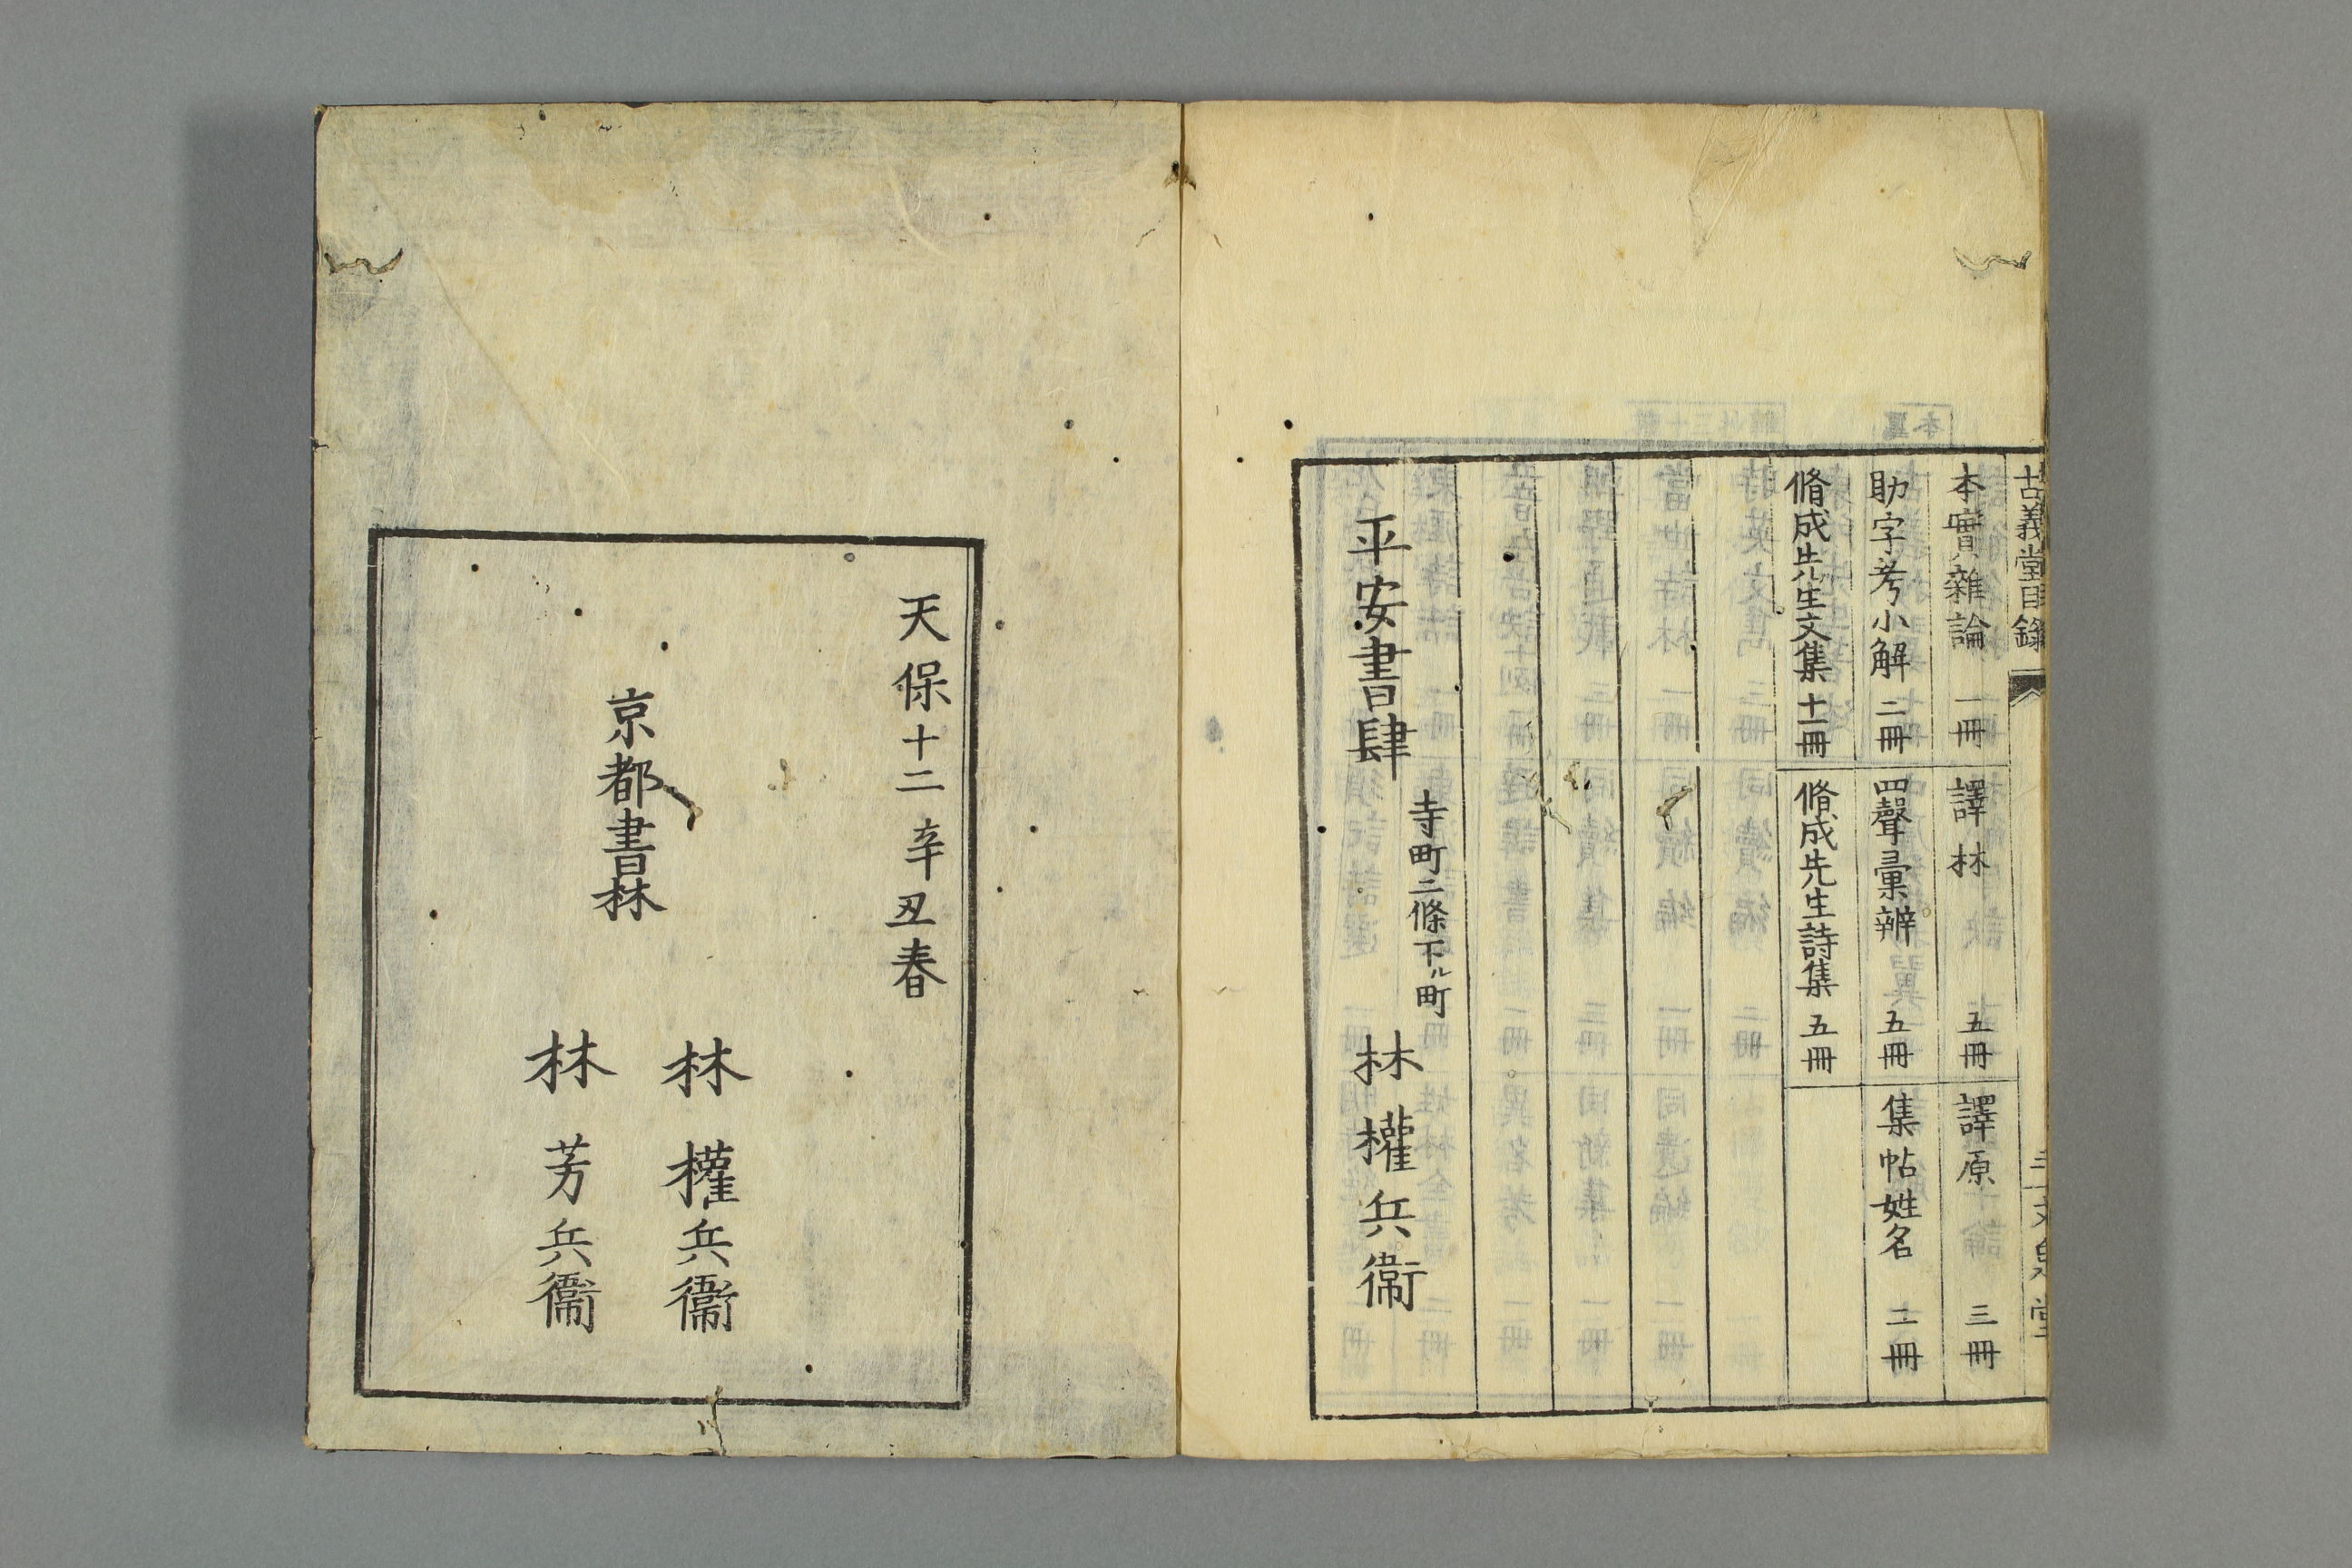 古義堂目錄
文泉堂
本實雜論 一冊
譯林 五冊
譯原 三冊
助字考小解 二冊
四聲彙辨 五冊
集帖姓名 二冊
脩成先生文集 十一冊
脩成先生詩集 五冊
平安書肆 寺町二條下ル町 林權兵衞
天保十二辛丑春
京都書林
林權兵衞
林芳兵衞